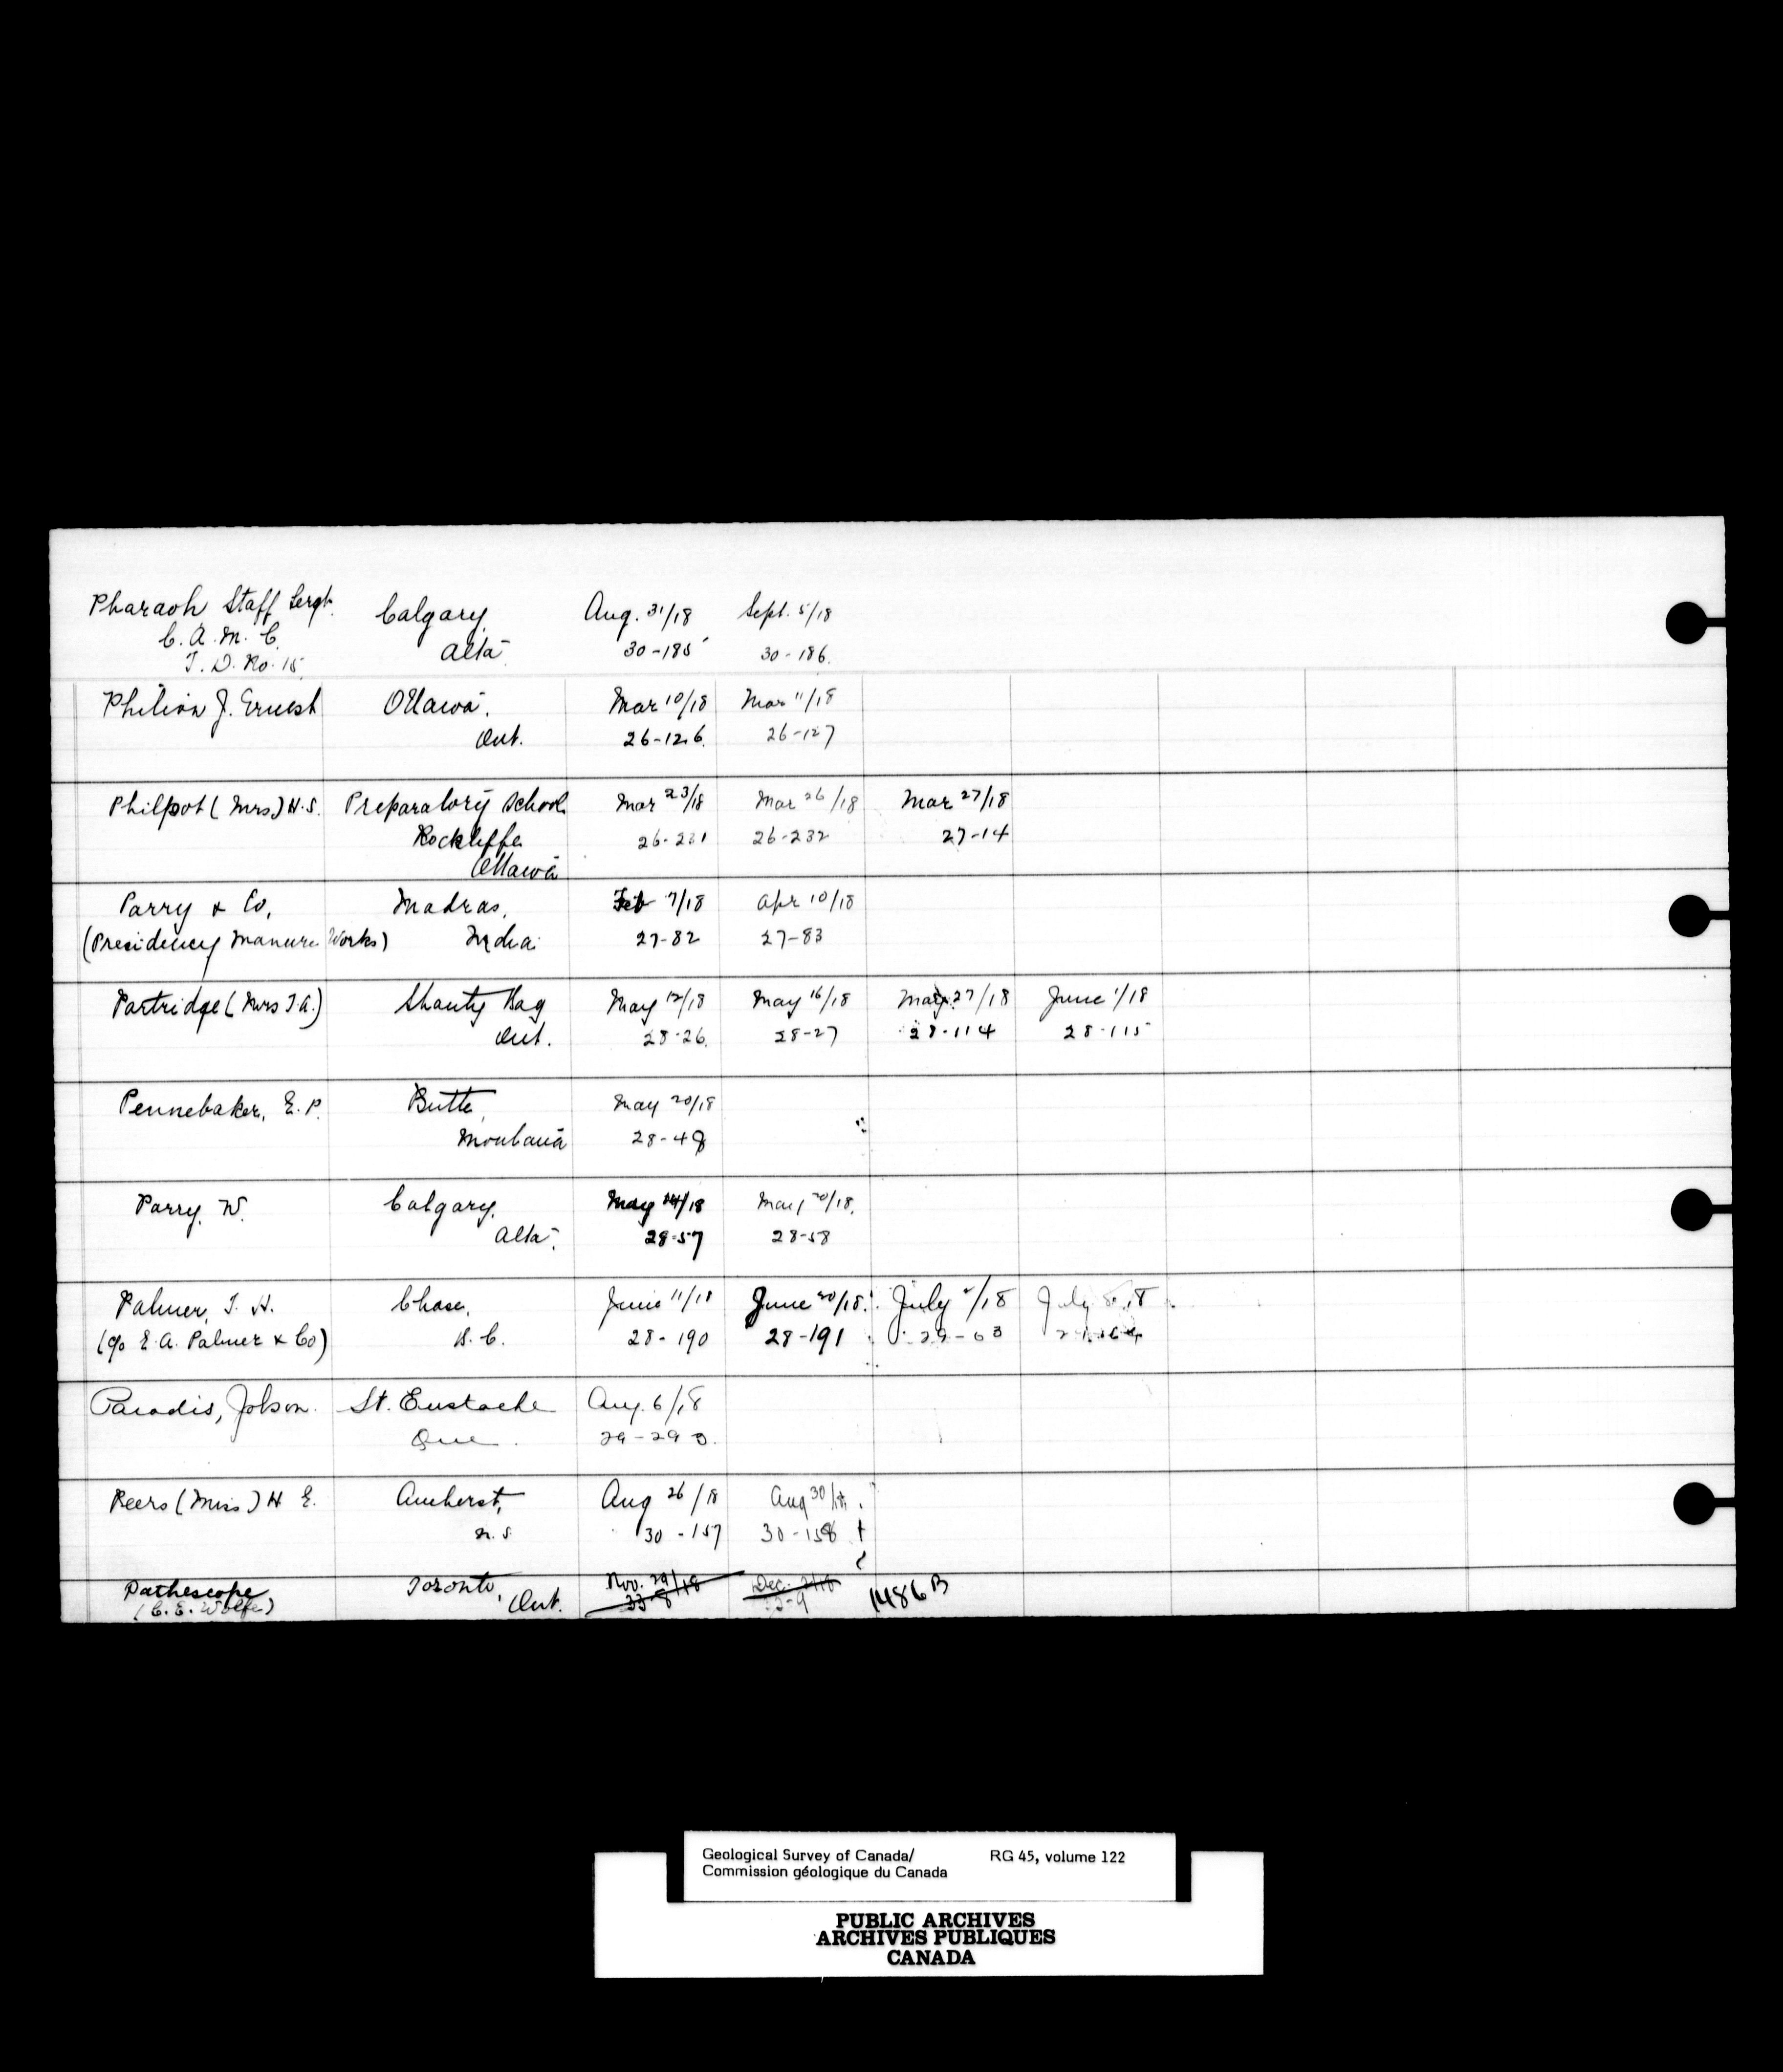 Pharaoh Staff Sergt. Calgary, Aug. 31/18 Sept. 5/18
C. A. M. C. Alta 30-185 30-186.
T. D. No. 15.
Philion J. Ernest Ottawa. Mar 10/18 Mar 11/18
Ont. 26-126. 26-127
Philpot (Mrs) H.S. Preparatory School Mar 23/18 Mar 26/18 Mar 27/18
Rockliffe 26-231 26-232 27-14
Ottawa
Parry & Co, Madras, Feb 7/18 Apr 10/18
(Presidency Manure Works) India 27-82 27-83
Partridge (Mrs T.A.) Shanty Bay May 12/18 May 16/18 May 27/18 June 1/18
Ont. 28-26. 28-27 28-114 28-115
Pennebaker, E. P. Butte, May 20/18
Montana 28-48
Parry, W. Calgary, May /18 May 20/18.
Alta. 28-57 28-58
Palmer, T. H. Chase, June 11/18 June 20/18. July /18 July 18
(c/o E. A. Palmer & Co) B. C. 28-190 28-191 29-63
Paradis, Jobson. St. Eustache Aug. 6/18
Que. 29-293.
Peers (Miss) H E. Amherst, Aug 26/18 Aug 30/18
N. S 30-157 30-158
Pathescope Toronto, Nov. 29/18 Dec. 2/18 1486 B
(C. E. Wolfe) Ont. 33-8 33-9
Geological Survey of Canada/ RG 45, volume 122
Commission géologique du Canada
PUBLIC ARCHIVES
ARCHIVES PUBLIQUES
CANADA